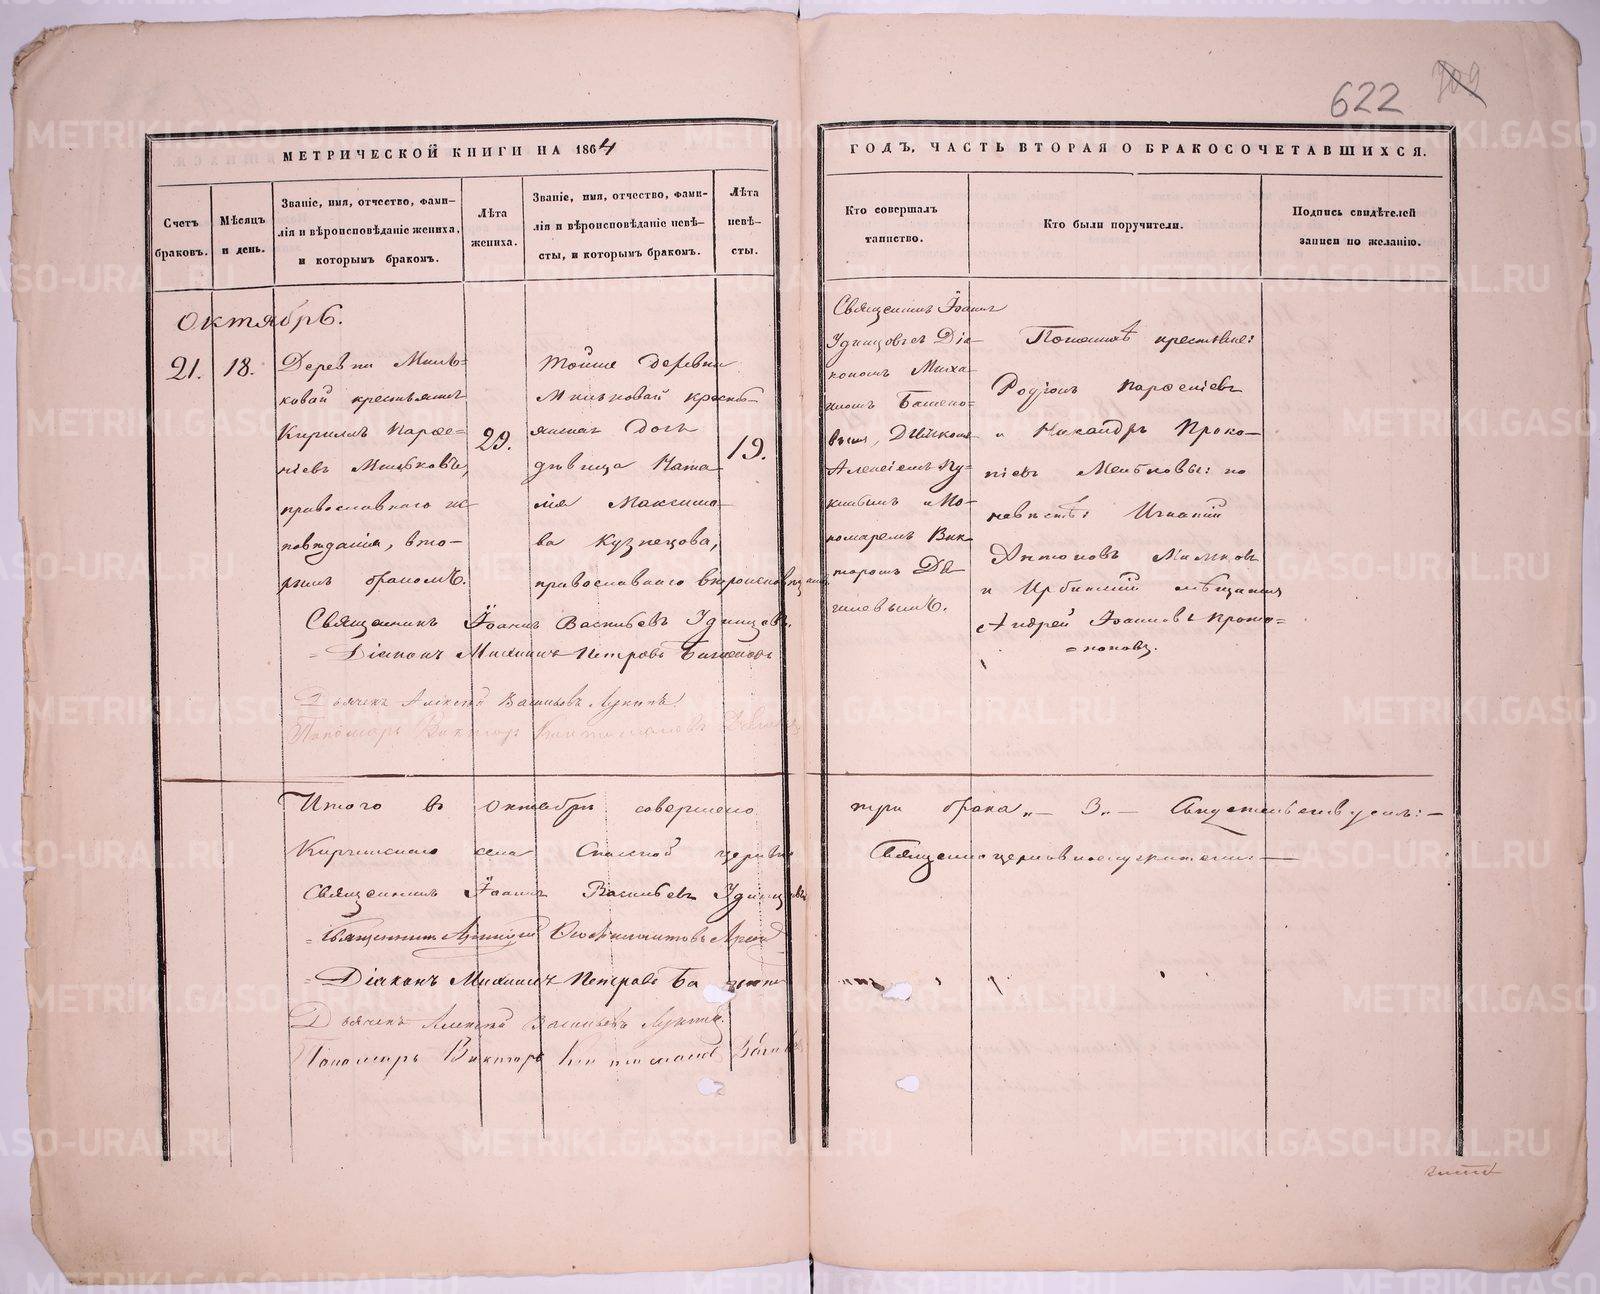 622
309
МЕТРИЧЕСКОЙ КНИГИ НА 1864
ГОДЪ, ЧАСТЬ ВТОРАЯ О БРАКОСОЧЕТАВШИХСЯ.
Счетъ
браковъ.
Мѣсяцъ
и день.
Званіе, имя, отчество, фами-
лія и вѣроисповѣданіе жениха,
и которымъ бракомъ.
Лѣта
жениха.
Званіе, имя, отчество, фами-
лія и вѣроисповѣданіе невѣ-
сты, и которымъ бракомъ.
Лѣта
невѣ-
сты.
Кто совершалъ
таинство.
Кто были поручители.
Подпись свидѣтелей
записи по желанію.
Октябрь.
21.
18.
Деревни Миль-
ковой крестьянинъ
Кириллъ Парѳе-
ніевъ Мильковъ,
православнаго ис-
повѣданія, вто-
рымъ бракомъ.
29.
Тойже деревни
Мильковой кресть-
янина дочь
дѣвица Ната-
лія Максимо-
ва Кузнецова,
православнаго вѣроисповѣданія
19.
Священникъ Іоаннъ
Удинцовъ съ Діа-
кономъ Миха-
иломъ Бажено-
вымъ, Дьячкомъ
Алексіемъ Лу-
кинымъ и По-
номаремъ Вик-
торомъ
По женихѣ крестьяне:
Родіонъ Парѳеніевъ
и Никандръ Проко-
піевъ Мильковы: по
невѣстѣ: Игнатій
Антоновъ Мильковъ
и Ирбитскій мѣщанинъ
Андрей Іоанновъ Прото-
=поповъ.
Священникъ Іоаннъ Васильевъ Удинцевъ.
= Діаконъ Михаилъ Петровъ Баженовъ
Дьячекъ Алексѣй Васильевъ Лукинъ
Пономарь Викторъ
Итого въ октябрѣ совершено
три брака „— 3 „— Свидѣтельствуемъ: —
Киргинскаго села Спасской церкви
Священно церковнослужители —
Священникъ Іоаннъ Васильевъ Удинцовъ
= Священникъ
= Діаконъ Михаилъ Петровъ Ба
Дьячекъ Алексѣй Васильевъ Лукинъ.
Пономарь Викторъ